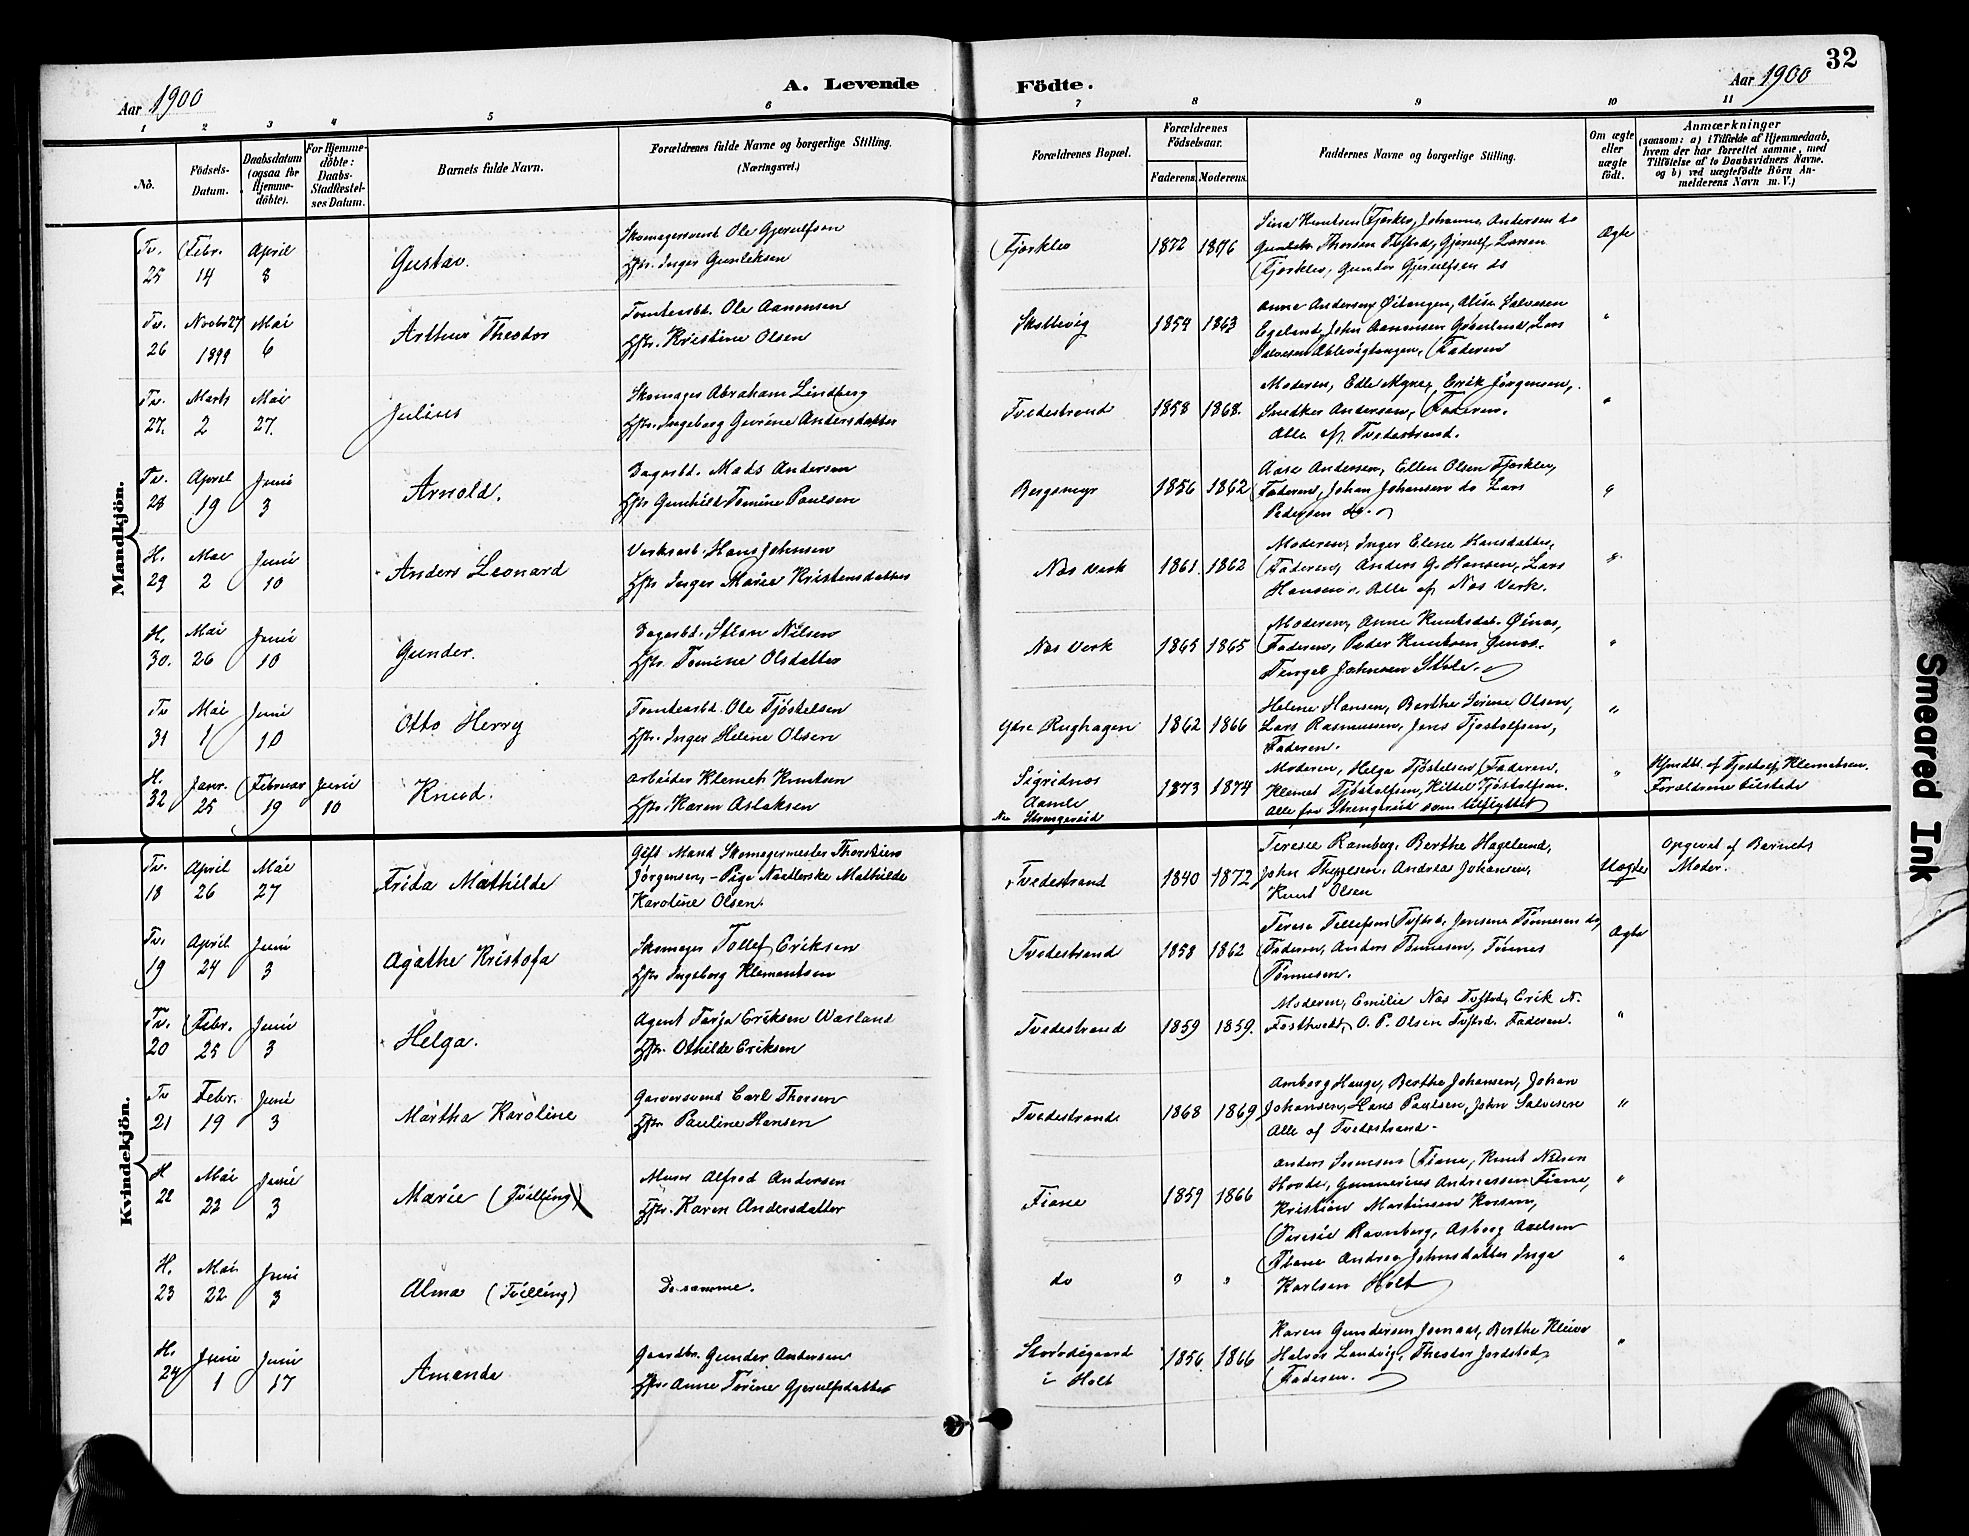 32
Aar 1900
A. Levende Födte.
Aar 1900
1 2 3 4 5 6 7 8 9 10 11
No.
Födsels-Datum.
Daabsdatum (ogsaa för Hjemme-döbte).
For Hjemme-döbte: Daabs-Stadfæstel-ses Datum.
Barnets fulde Navn.
Forældrenes fulde Navne og borgerlige Stilling.
(Næringsvei.)
Forældrenes Bopæl.
Forældrenes Födselsaar.
Faderens. Moderens.
Faddernes Navne og borgerlige Stilling.
Om ægte eller uægte födt.
Anmærkninger
(saasom: a) i Tilfælde af Hjemmedaab, hvem der har forrettet samme, med Tilföielse af to Daabsvidners Navne. og b) ved uægtefödte Börn An-melderens Navn m. V.)
Mandkjön.
Tv. 25 Febr. 14 April 8 Gustav.
Skomagersvend Ole Gjerulfsen
Hstr. Inger Gunleksen
Fjærklev 1872 1876
Sina Knutsen Fjærklev, Johanne Andersen do
Thorsen Tvfstrd, Gjerulf Larsen
Fjærklev, Gunder Gjerulfsen do
Ægte
Tv. 26 Novbr 27 1899 Mai 6 Arthur Theodor
Tomtearbd. Ole Aanonsen
Hstr. Kristine Olsen
Skottevig 1859 1863
Anne Andersen Øitangen, Alise Salvesen
Egeland, John Aanonsen Grønland, Lars
Salvesen Ablevigtangen, Faderen
"
Tv. 27. Marts 2 Mai 27. Julius
Skomager Abraham Lindberg
Hstr. Ingeborg Gurine Andersdatter
Tvedestrand 1858 1868.
Moderen, Edle Myre, Erik Jörgensen,
Snedker Andersen, Faderen.
Alle af Tvedestrand.
"
Tv. 28 April 19 Juni 3 Arnold.
Dagarbd. Mads Andersen
Hstr Gunhild Tomine Paulsen
Bergsmyr 1856 1862
Aase Andersen, Ellen Olsen Fjærklev,
Faderen, Johan Johansen do Lars
Pedersen do.
"
H. 29 Mai 2 Juni 10 Anders Leonard
Verksarb. Hans Johnsen
Hstr Inger Marie Kristensdatter
Næs Verk 1861. 1862
Moderen, Inger Elene Hansdatter,
Faderen, Anders G. Hansen, Lars
Hansen, Alle af Næs Verk.
"
H. 30. Mai 26 Juni 10 Gunder.
Dagarbd. Steen Nilsen
Hstr. Tomine Olsdatter
Næs Verk 1865 1865
Moderen, Anne Knutsdat. Øinæs,
Faderen, Peder Knutsen Øinæs.
Tengel Johnsen Støle.
"
Tv 31 Mai 1 Juni 10 Otto Herry
Tomtearbd. Ole Tjöstelsen
Hstr. Inger Helene Olsen
Ytre Rughagen 1862 1866
Helene Hansen, Berthe Serine Olsen,
Lars Rasmussen, Jens Tjostolfsen,
Faderen.
"
H. 32 Janr. 25 Februar 19 Juni 10 Knud.
Arbeider Klemet Knutsen
Hstr. Karen Aslaksen
Sigridnæs
Aamle
Nu Strengereid
1873 1874
Moderen, Helga Tjöstelsen, Faderen,
Klemet Tjöstolfsen, Kittel Tjöstolfsen.
Alle fra Strengereid som tilflyttet
"
Hjmdbt. af Tjostolf Klemetsen.
Forældrene tilstede
Kvindekjön.
Tv. 18 April 26 Mai 27 Frida Mathilde
Gift Mand Skomagermester Thorstein
Jörgensen, - Pige Naatlerske Mathilde
Karoline Olsen.
Tvedestrand 1840 1872
Teresie Ramberg, Berthe Hagelund,
John Theyelsen, Andreas Johansen,
Knut Olsen
Uægte
Opgivet af Barnets
Moder.
Tv. 19 April 24 Juni 3 Agathe Kristofa
Skomager Tollef Eriksen
Hstr Ingeborg Klementsen
Tvedestrand 1858 1862
Terese Tellefsen Tvfstrd. Jensine Tönnesen do,
Faderen, Anders Tönnesen, Tönnes
Tönnesen.
Ægte
Tv. 20 Febr. 25 Juni 3 Helga.
Agent Tarje Eriksen Wasland
Hstr. Othilde Eriksen
Tvedestrand 1859 1859.
Moderen, Emilie Næs Tvfstrd, Erik N.
Fosthveit, O. P. Olsen Tvfstrd. Faderen.
"
Tv 21 Febr. 19 Juni 3 Martha Karoline
Garversvend Carl Thorsen
Hstr Pauline Hansen
Tvedestrand 1868 1869
Amborg Hauge, Berthe Johansen, Johan
Johansen, Hans Paulsen, John Salvesen
Alle af Tvedestrand.
"
H 22 Mai 22 Juni 3 Marie (Tvilling)
Murer Alfred Andersen
Hstr. Karen Andersdatter
Fiane 1859 1866
Anders Sörensen Fiane, Knut Nilsen
Hovde, Gunnerius Andreassen Fiane,
Kristian Martinsen
"
H. 23 Mai 22 Juni 3 Alma (Tvilling)
De samme.
do " "
Teresie Ravnberg, Asborg Axelsen
Fiane Andrea Johnsdatter Inga
Karlsen Holt
"
H. 24 Juni 1 Juni 17 Amanda
Gaardbr. Gunder Andersen
Hstr. Anne Torine Gjerulfsdatter
i Holt
1856. 1866
Karen Gundersen Jomaas, Berthe Kleive
Halvor Landvig, Theodor Jordstad,
Faderen.
"
Smeared Ink